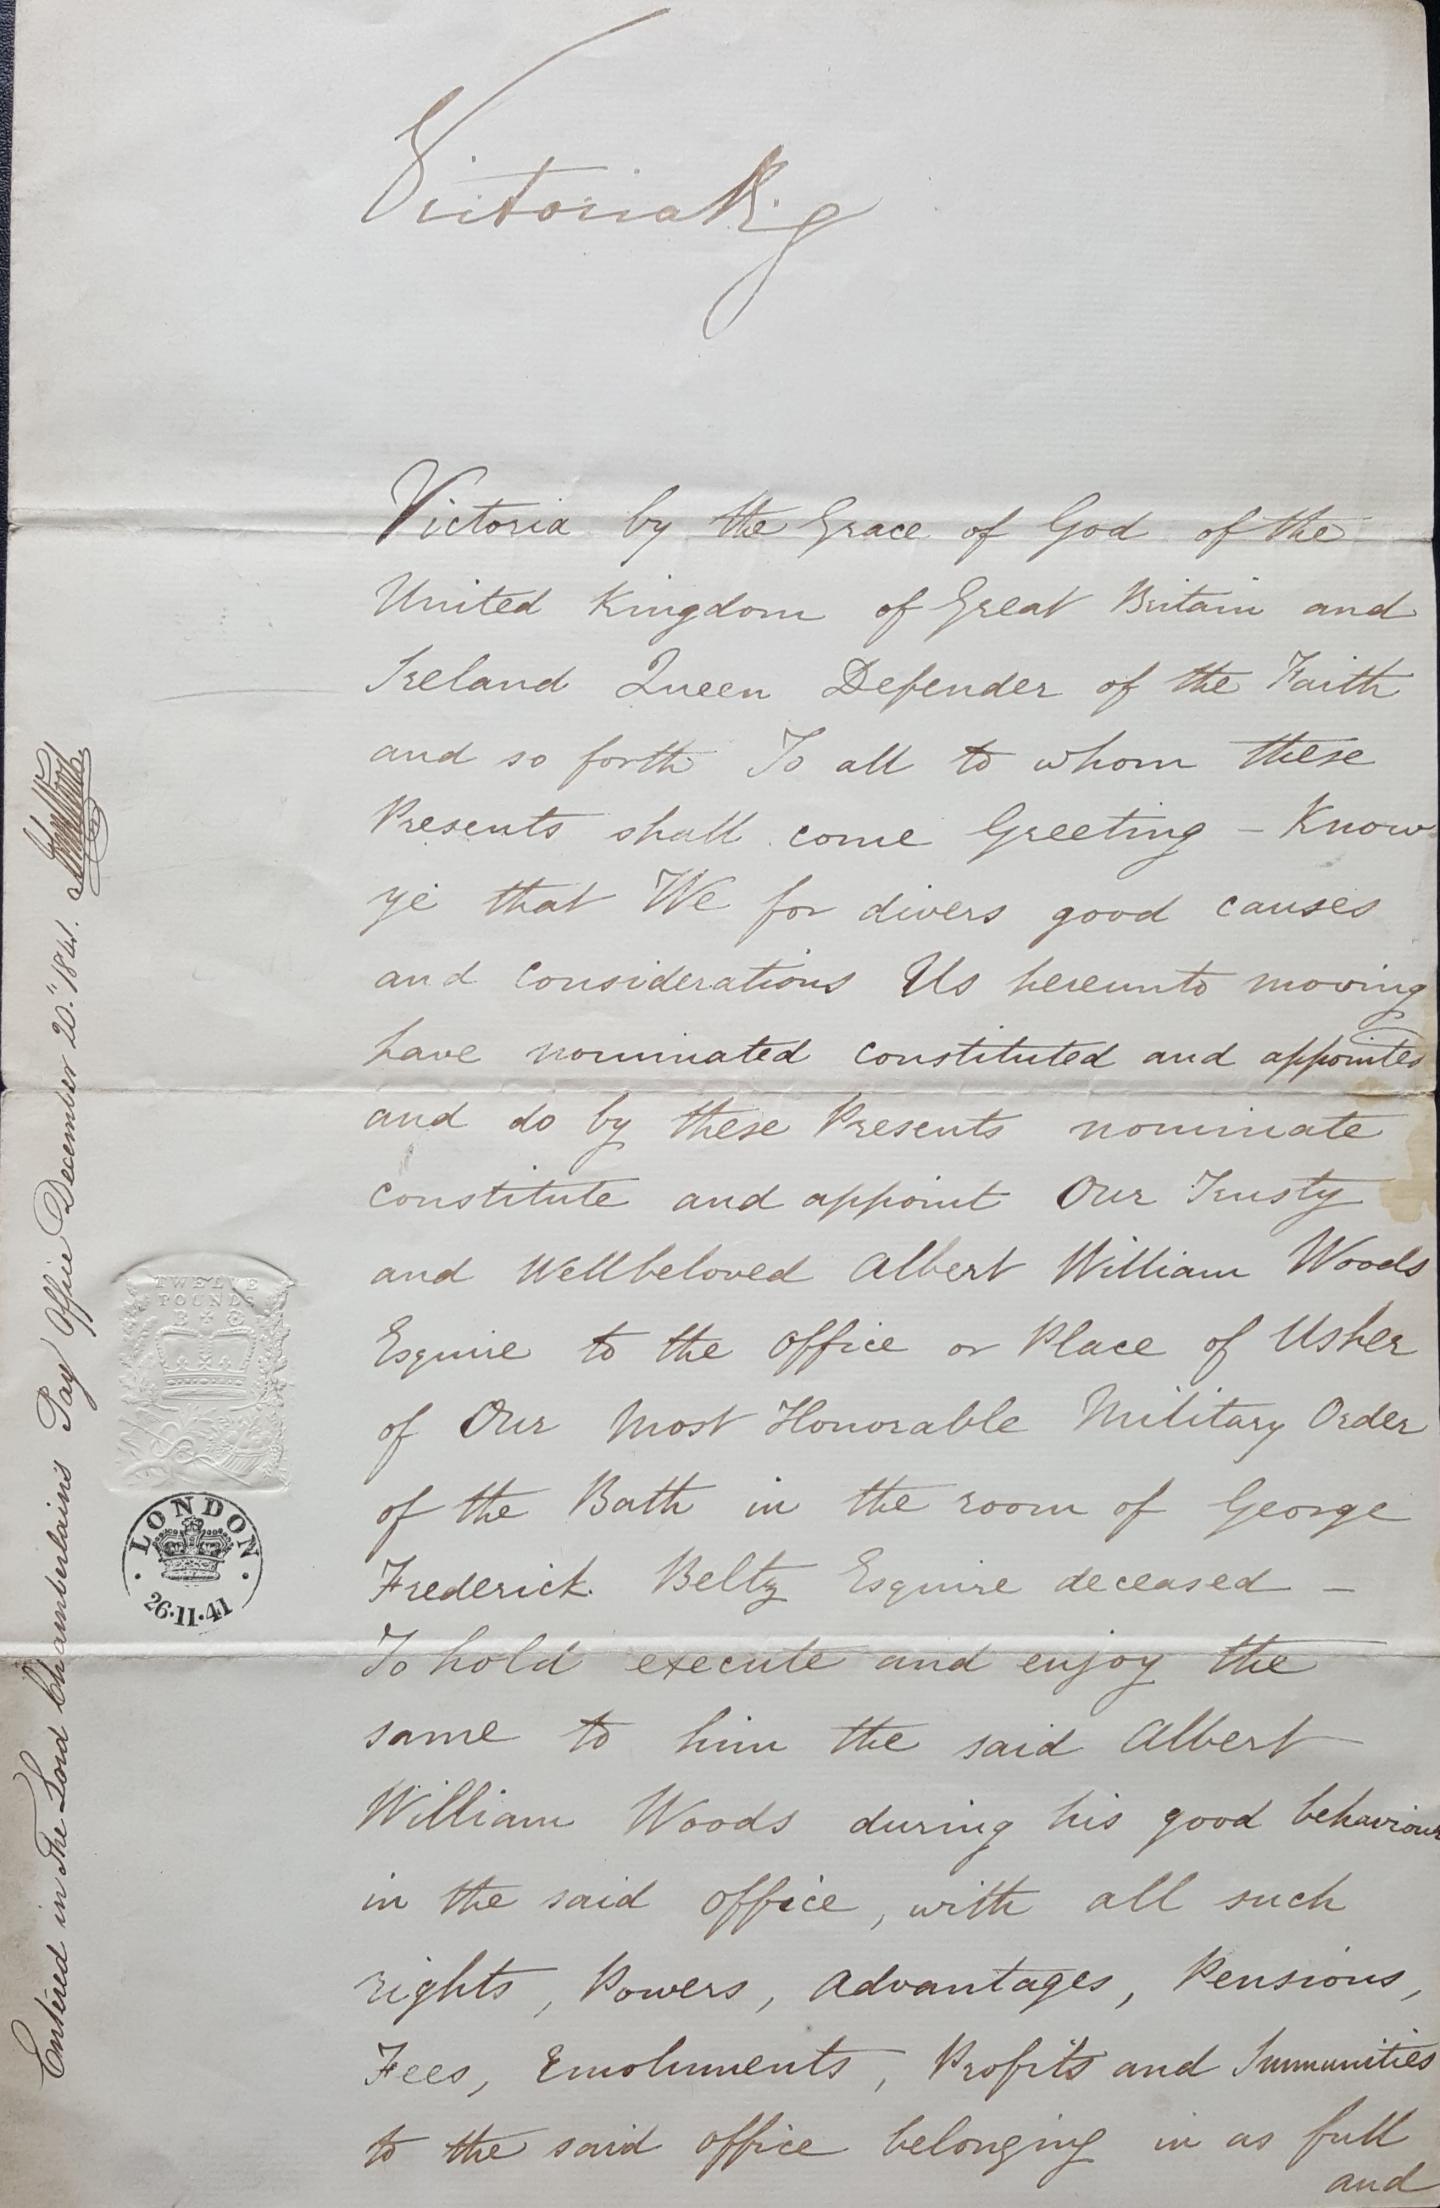 Victoria Rg
Victoria by the Grace of God of the
United Kingdom of Great Britain and
Ireland Queen Defender of the Faith
and so forth To all to whom these
Presents shall come Greeting - Know
ye that We for divers good causes
and considerations Us hereunto moving
have nominated constituted and appointed
and do by these Presents nominate
constitute and appoint Our Trusty
and Wellbeloved Albert William Woods
Esquire to the Office or Place of Usher
of Our Most Honorable Military Order
of the Bath in the room of George
Frederick Beltz Esquire deceased -
To hold execute and enjoy the
same to him the said Albert
William Woods during his good behaviour
in the said office, with all such
rights, Powers, Advantages, Pensions,
Fees, Emoluments, Profits and Immunities
to the said office belonging in as full
and
Entered in The Lord Chamberlain's Pay Office December 20. 1841.
TWELVE
POUNDS
LONDON
26·11·41